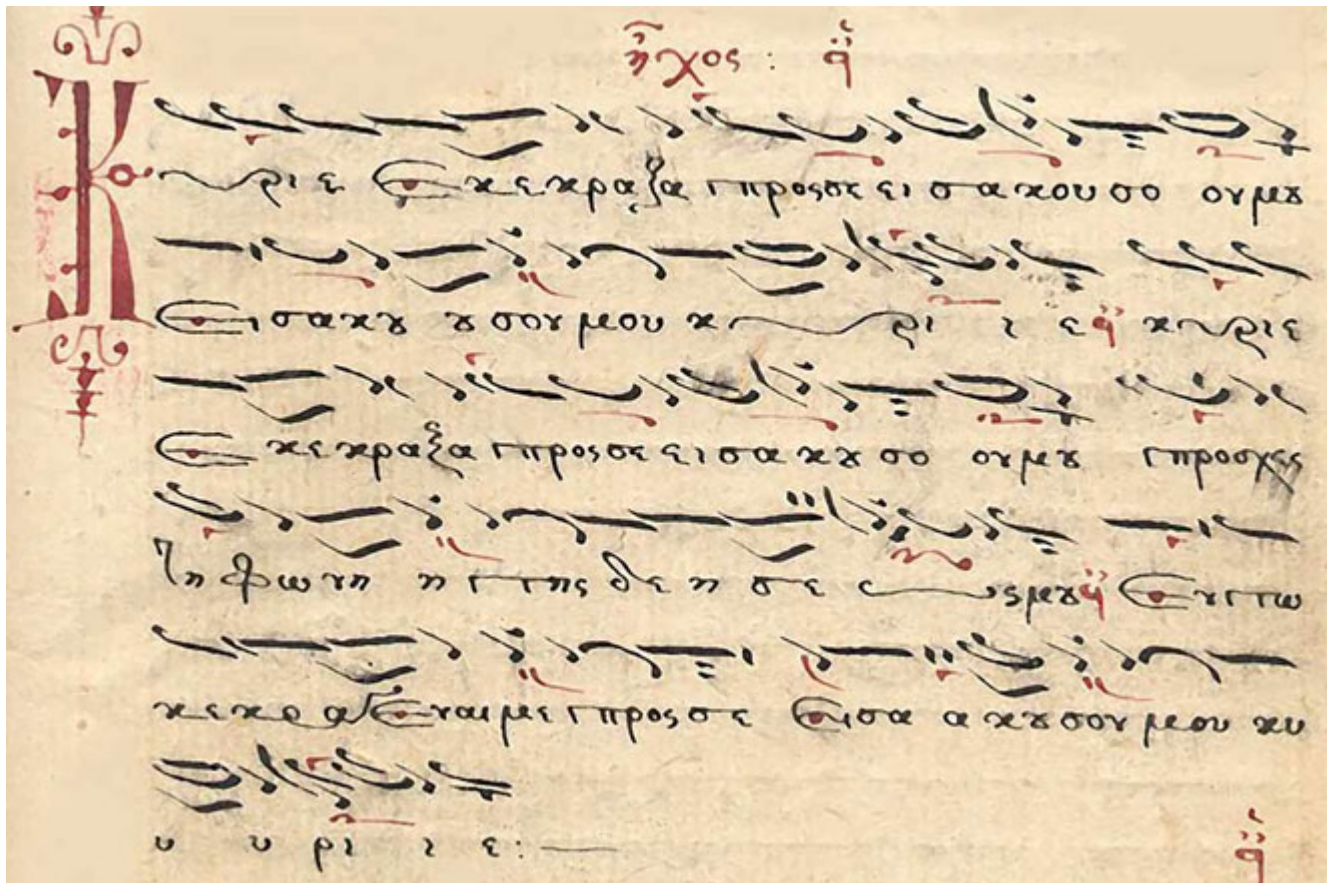 ἦχος: q̈
Κυριε Εκεκραξα προςσε εισακουσο ουμȣ
Εισακȣ ȣσουμου κυρι ι ε q̈ κυριε
Εκεκραξα προςσε εισακȣσο ουμȣ προσχες
τη φωνη η της δεησε ωςμȣ q̈ Εντω
κεκραγεναιμε προςσε Εισα ακȣσουμου κυ
υ υ ρι ι ε:
q̈